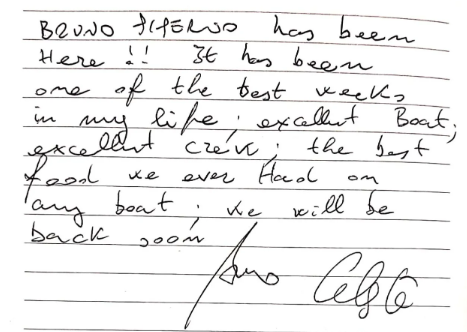 BRUNO PIPERNO has been
Here !! It has been
one of the best weeks
in my life; excellent Boat;
excellent crew; the best
food we ever Had on
any boat; we will be
back soon